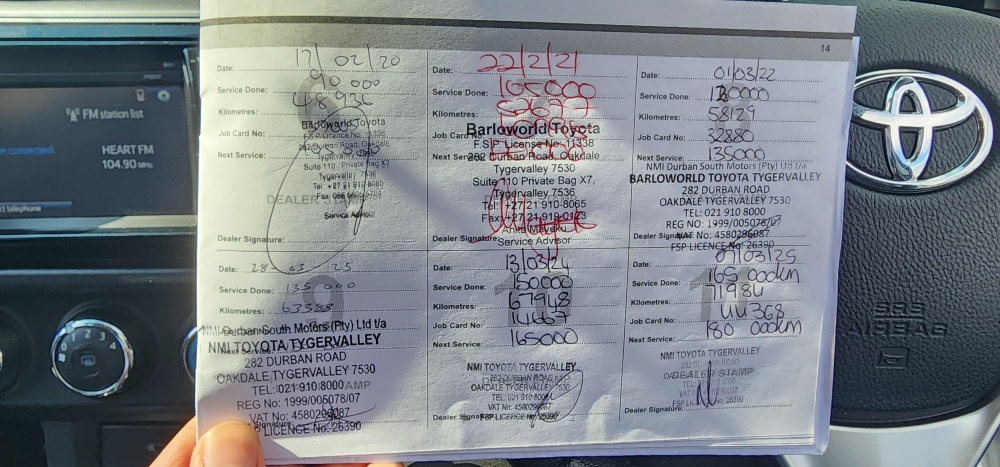 FM station list
HEART FM
104.90 MHz
Select telephone
14
Date: 17/02/20
Service Done: 90 000
Kilometres: 48936
Job Card No:
Next Service:
Barloworld Toyota
F.S.P License No: 11338
Tygervalley 7530
Suite 110 Private Bag X7
Tygervalley 7536
DEALER STAMP
Dealer Signature:
Date: 22/2/21
Service Done: 105000
Kilometres:
Job Card
Next Service
Barloworld Toyota
F.S.P License No: 11338
282 Durban Road, Oakdale
Tygervalley 7530
Suite 110 Private Bag X7,
Tygervalley 7536
Tel: +27 21 910-8065
Fax: +27 21 919-0123
Dealer Signature
Service Advisor
Date: 01/03/22
Service Done: 120000
Kilometres: 58129
Job Card No: 32880
Next Service: 135000
NMI Durban South Motors (Pty) Ltd t/a
BARLOWORLD TOYOTA TYGERVALLEY
282 DURBAN ROAD
OAKDALE TYGERVALLEY 7530
TEL: 021 910 8000
REG NO: 1999/005078/07
VAT No: 4580296087
FSP LICENCE No: 26390
Date: 28-03-23
Service Done: 135 000
Kilometres: 63388
NMI Durban South Motors (Pty) Ltd t/a
NMI TOYOTA TYGERVALLEY
282 DURBAN ROAD
OAKDALE TYGERVALLEY 7530
TEL: 021 910 8000
REG No: 1999/005078/07
VAT No: 4580296087
FSP LICENCE No: 26390
Date: 13/03/24
Service Done: 150.000
Kilometres: 67948
Job Card No: 14667
Next Service: 165000
NMI TOYOTA TYGERVALLEY
282 DURBAN ROAD
OAKDALE TYGERVALLEY 7530
TEL: 021 910 8000
VAT No: 4580296087
FSP LICENCE No: 26390
Dealer Signature
Date: 07/03/25
Service Done: 165 000km
Kilometres: 71984
Job Card No: 44368
Next Service: 180 000km
NMI TOYOTA TYGERVALLEY
282 DURBAN ROAD
DEALER STAMP
FSP LICENCE No: 26390
Dealer Signature:
SRS
AIRBAG